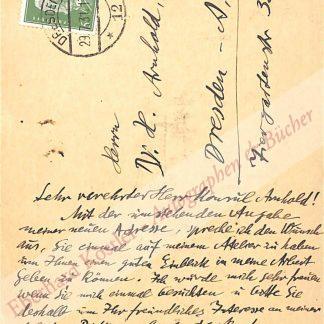 DRESDEN
29.
12
Herrn
Dr. H. Arnhold,
Dresden - A,
Tiergartenstr. 3
Sehr verehrter Herr Konsul Arnhold!
Mit der umstehenden Angabe
meiner neuen Adresse, spreche ich den Wunsch
aus, Sie einmal auf meinem Atelier zu haben
um Ihnen einen guten Einblick in meine Arbeit
geben zu können. Ich würde mich sehr freuen
wenn Sie mich einmal besuchten u. bitte Sie
deshalb um Ihr freundliches Interesse an meiner